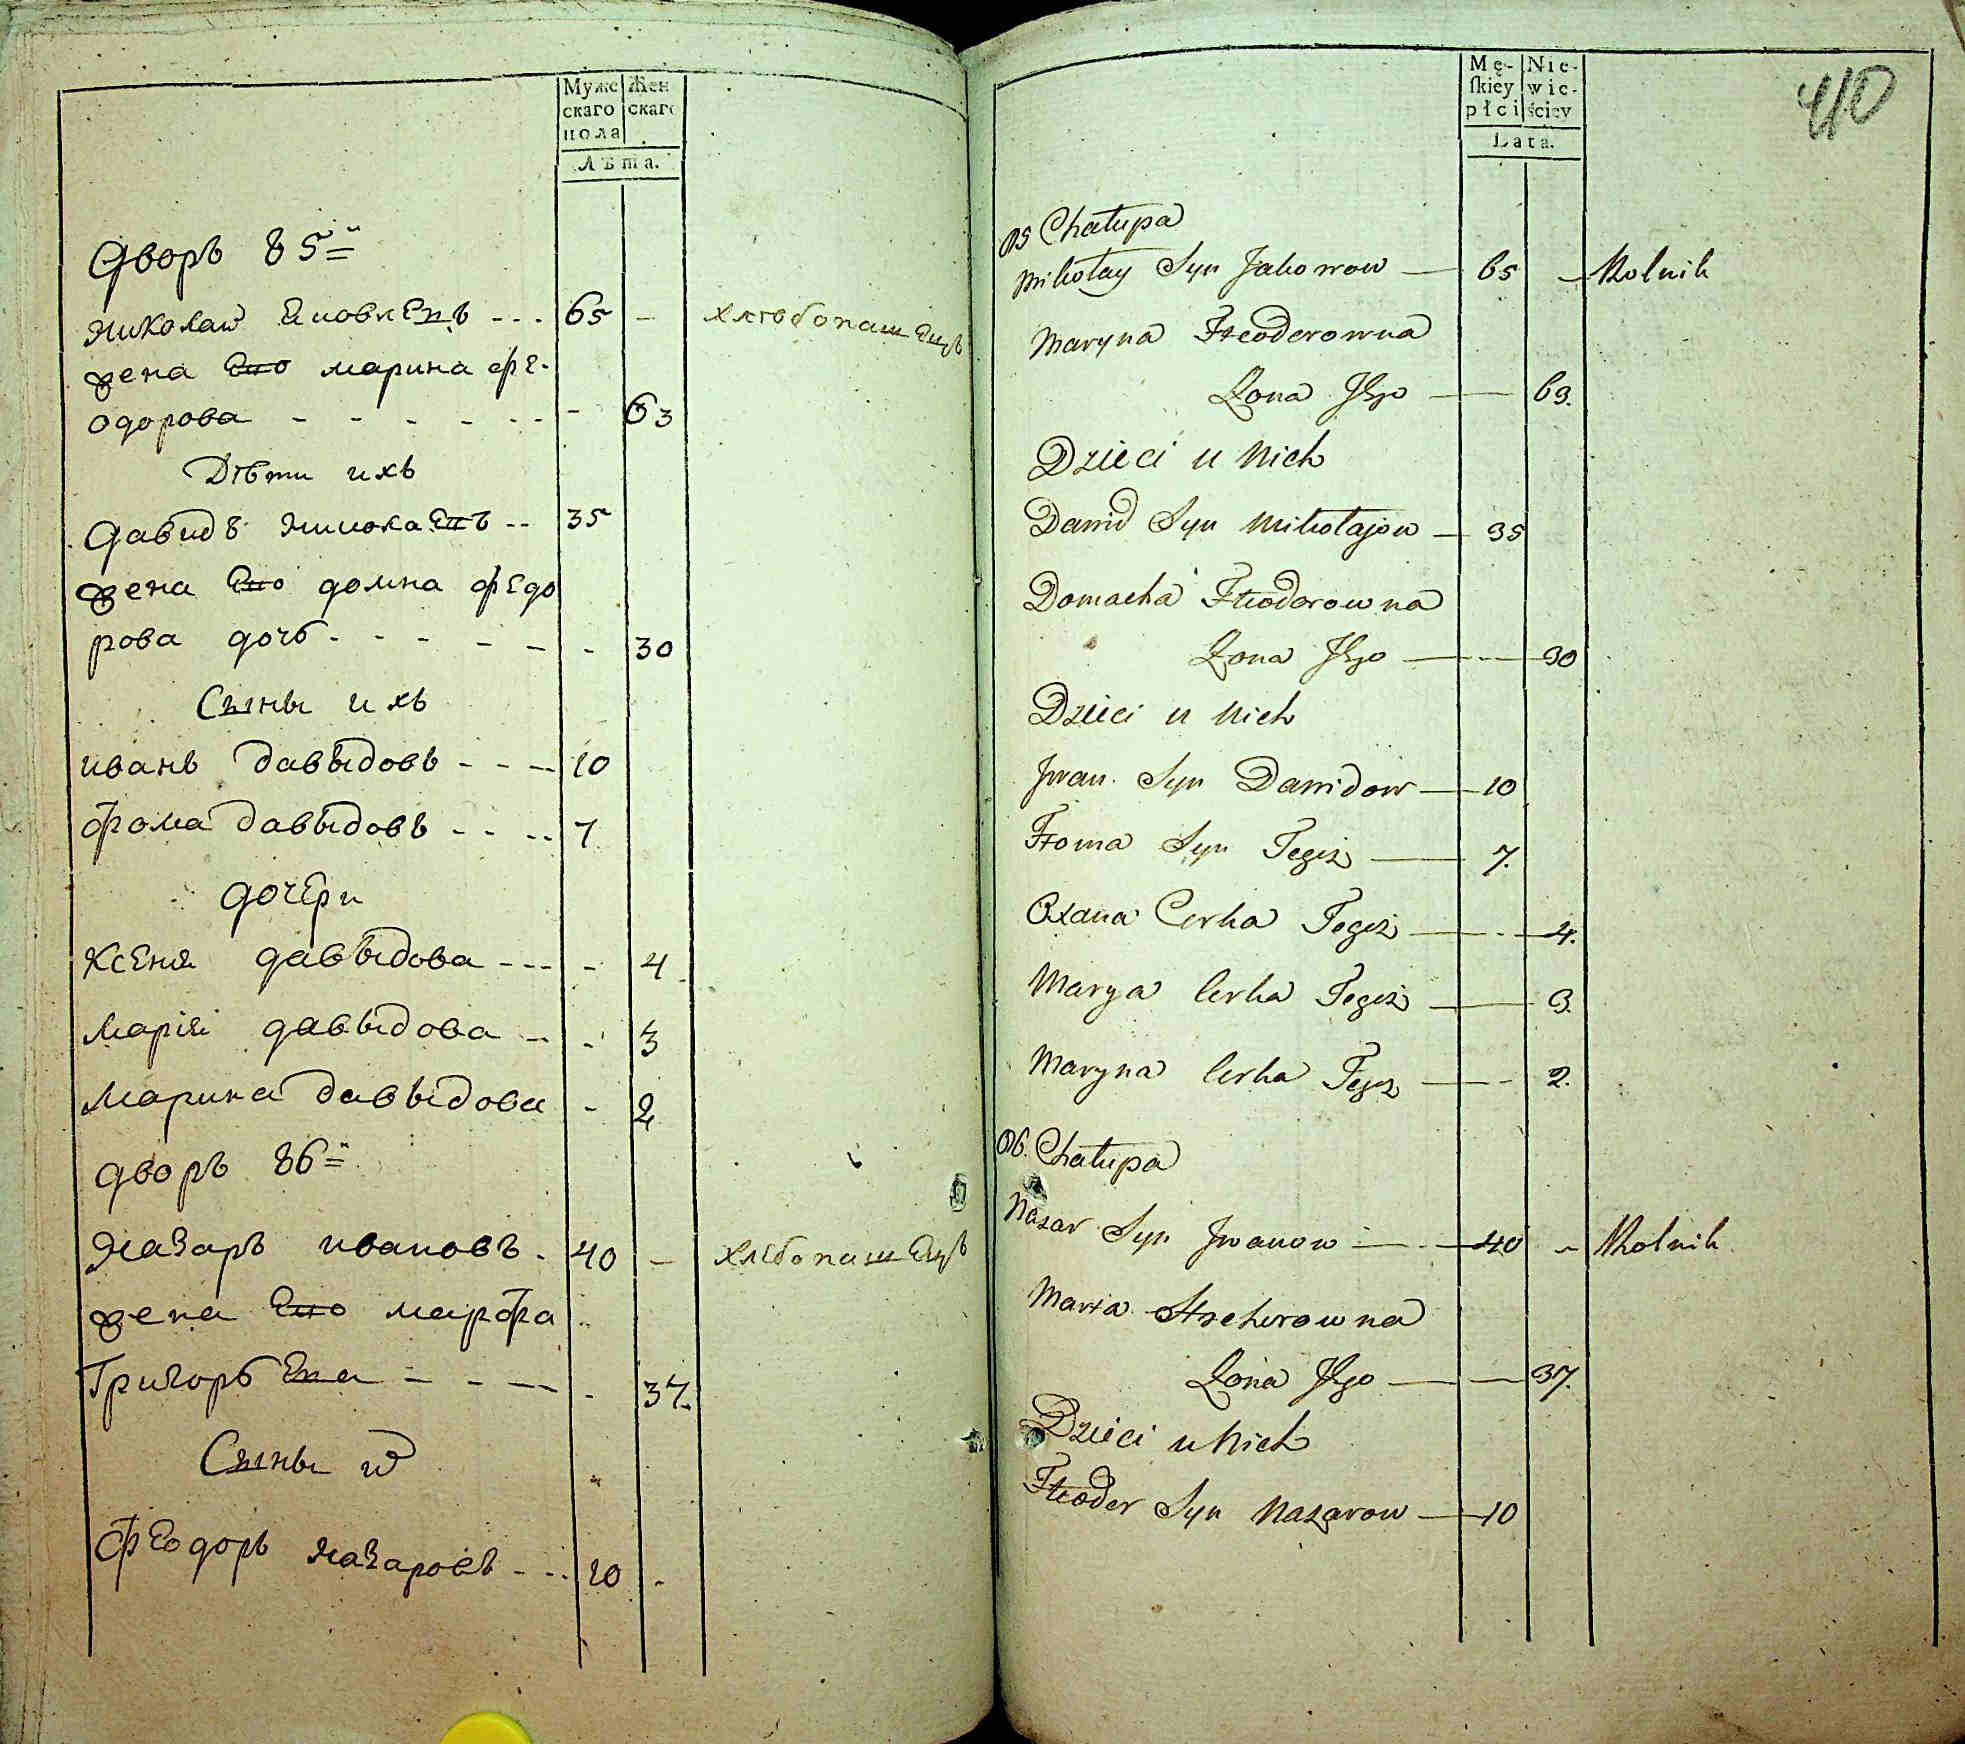 Мужс
скаго
пола
Жен
скаго
Лѣта.
Дворъ 85й
Николай Яковлевъ --- 65 - хлѣбопашецъ
жена Его марина фе-
одорова - - - - - - - 63
Дѣти ихъ
Давидъ Николаевъ -- 35
жена Его домна федо
рова дочь - - - - - - 30
Сыны ихъ
иванъ давыдовъ --- 10
фома давыдовъ ---- 7
дочери
Ксеня давыдова --- - 4
Марія давыдова -- - 3
Марина давыдова - 2
дворъ 86й
Назаръ ивановъ - 40 - хлѣбопашецъ
жена Его марфа
Григорьева - - - - - 37.
Сыны ихъ
Феодоръ Назаровъ --- 10 -
40
Mę-
ſkiey
płci
Nie-
wie-
ściey
Lata.
85 Chałupa
Mikołay Syn Jakowow — 65 - Rolnik
Maryna Fteodorowna
Żona Jego — 63.
Dzieci u Nich
Dawid Syn Mikołajow — 35
Domacha Fteodorowna
Żona Jego — 30
Dzieci u Nich
Jwan Syn Dawidow — 10
Ftoma Syn Tegoż — 7.
Oxana Corka Tegoż — 4.
Marya Corka Tegoż — 3.
Maryna Corka Tegoż — 2.
86. Chałupa
Nazar Syn Jwanow — 40 - Rolnik
Marta Hrehorowna
Żona Jego — 37.
Dzieci u Nich
Fteodor Syn Nazarow — 10